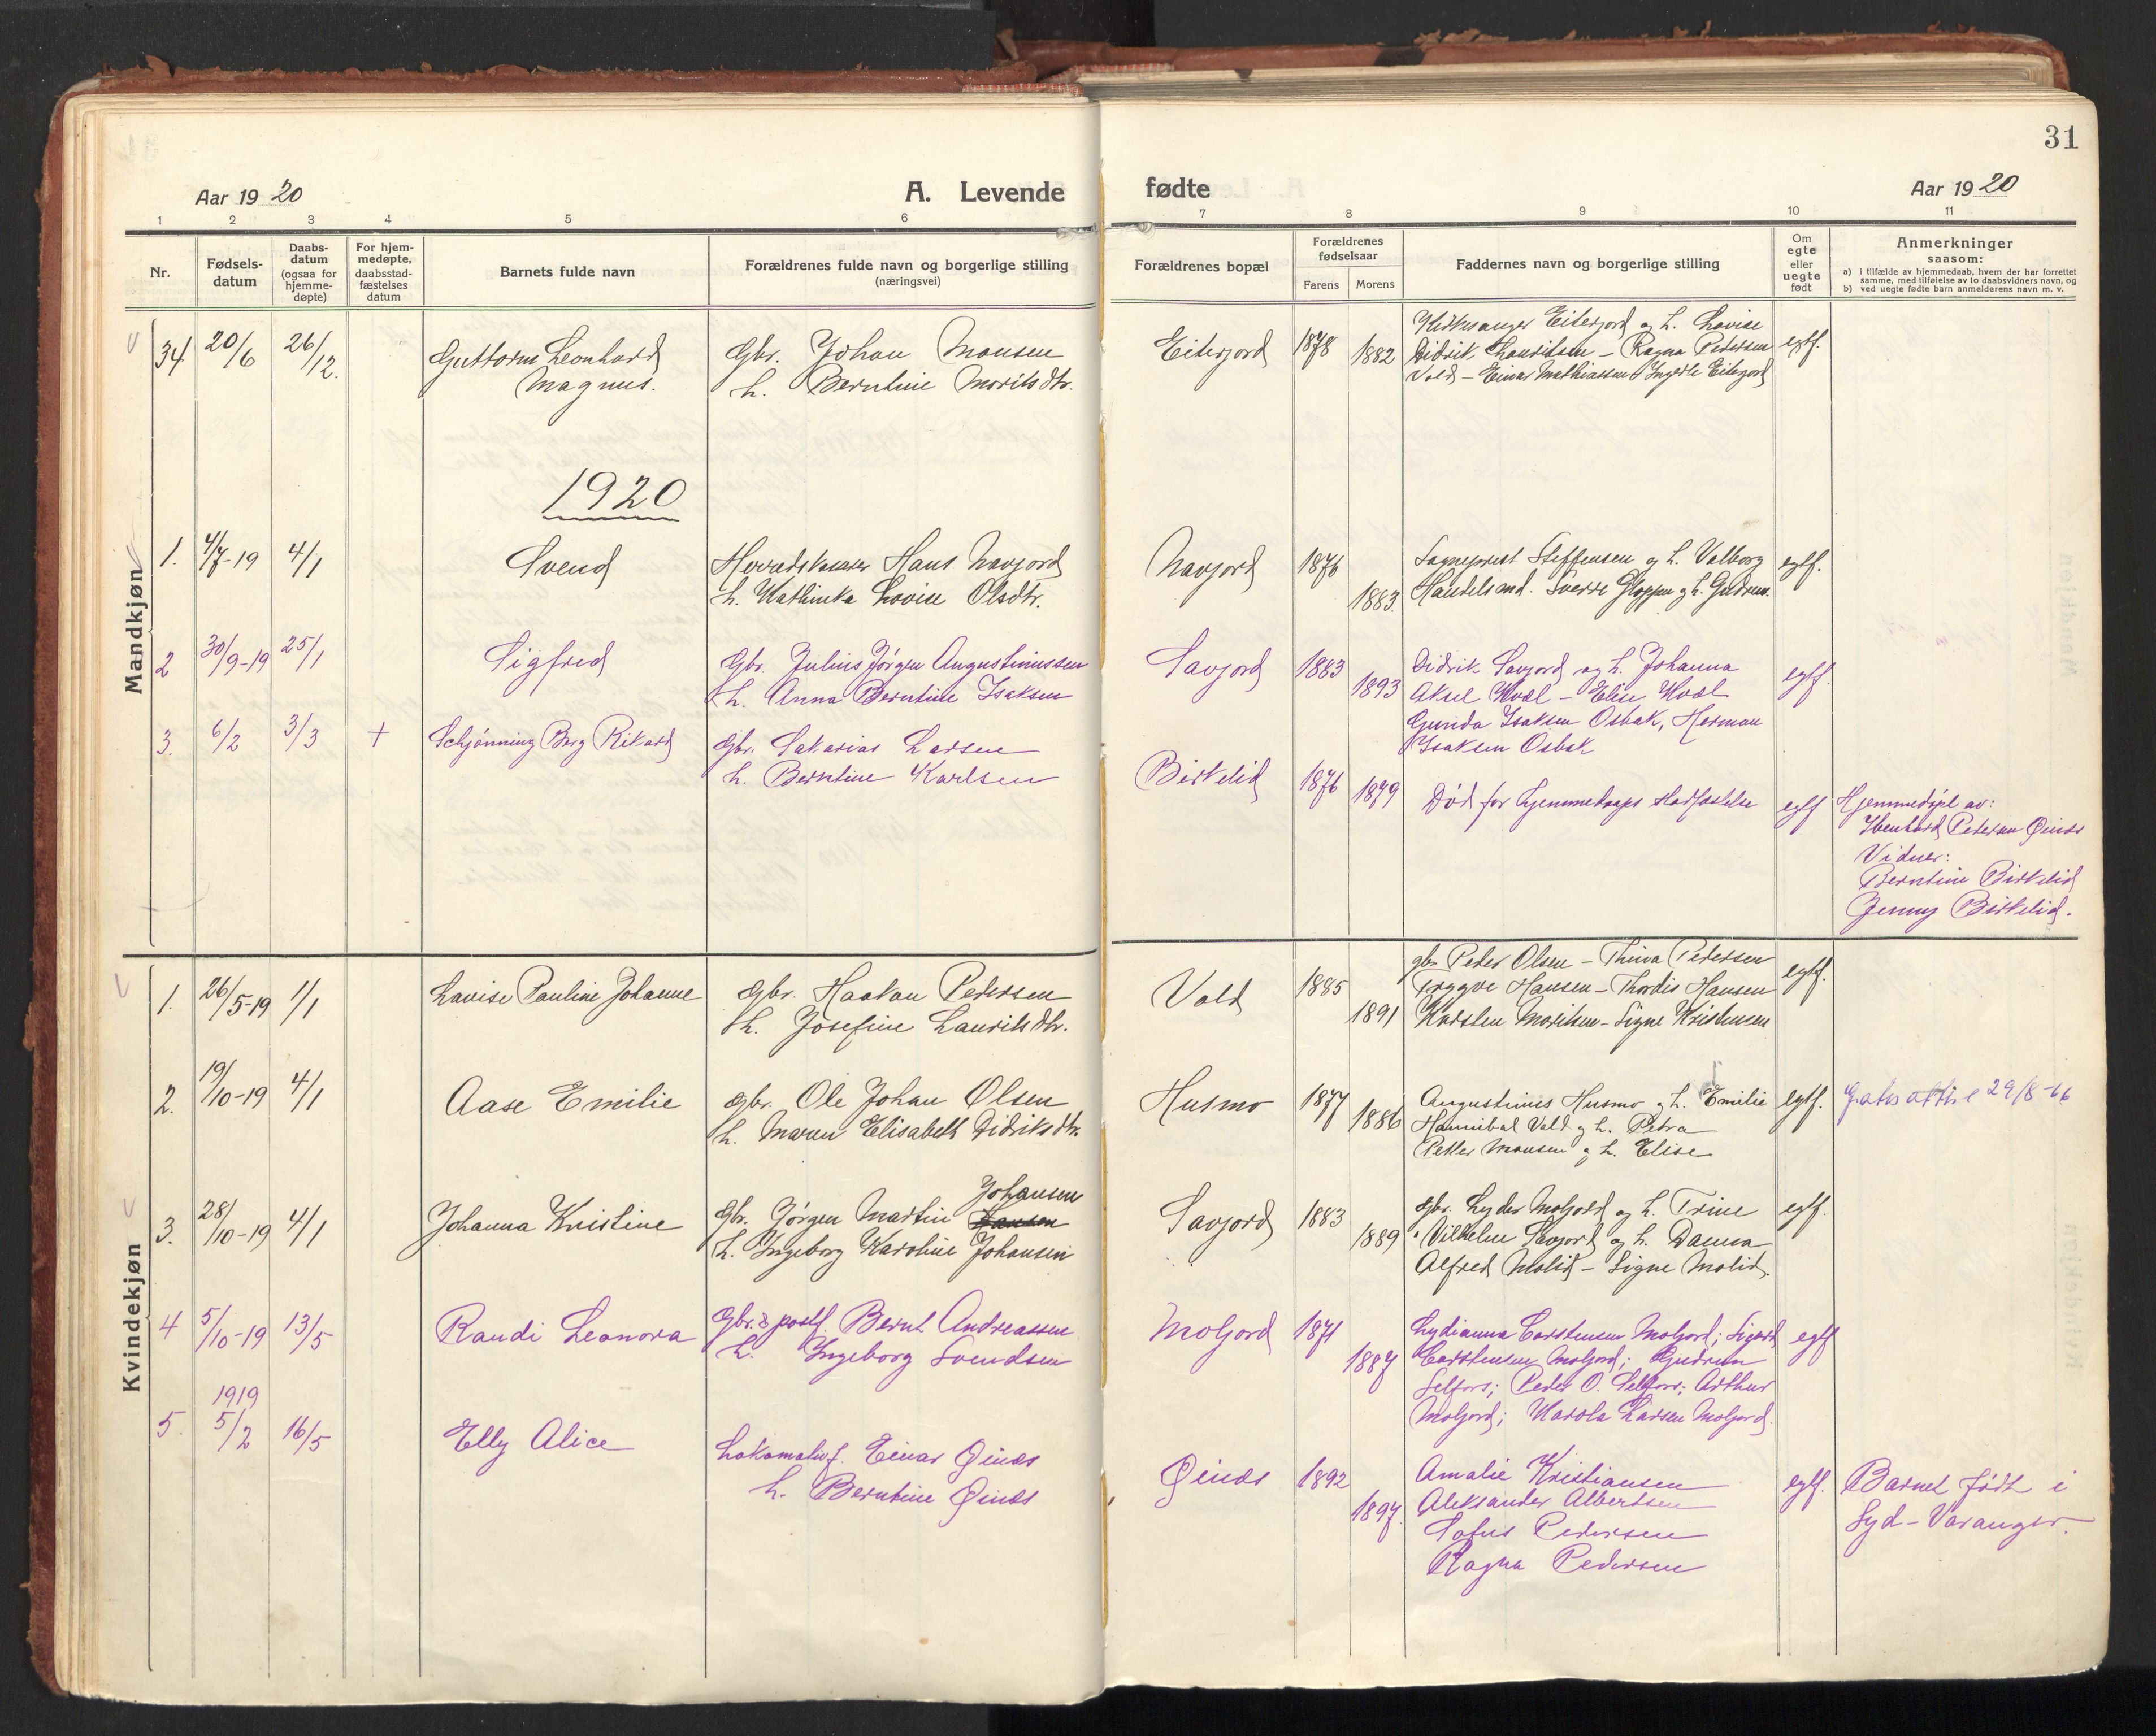 31
Aar 1920 A. Levende fødte Aar 1920
1 2 3 4 5 6 7 8 9 10 11
Nr.
Fødsels-
datum
Daabs-
datum
(ogsaa for
hjemme-
døpte)
For hjem-
medøpte,
daabsstad-
fæstelses
datum
Barnets fulde navn
Forældrenes fulde navn og borgerlige stilling
(næringsvei)
Forældrenes bopæl
Forældrenes
fødselsaar
Farens Morens
Faddernes navn og borgerlige stilling
Om
egte
eller
uegte
født
Anmerkninger
saasom:
a) i tilfælde av hjemmedaab, hvem der har forrettet
samme, med tilføielse av to daabsvidners navn, og
b) ved uegte fødte barn anmelderens navn m. v.
Mandkjøn
34 20/6 26/12.
Guttorm Leonhard
Magnus.
Gbr. Johan Monsen
h. Berntine Moritsdtr.
Eiterjord 1878 1882
Kirkesanger Eiterjord og h. Lovise
Didrik Lauritsen - Ragna Pedersen
Vold - Einar Mathiassen Eiterjord
egtf.
1920
1. 4/7-19 4/1
Svend
Hans Navjord
h. Kathinka Lovise Olsdtr.
Navjord 1876 1883.
Sogneprest Steffensen og h. Valborg
Handelsmd. Sverre Gloppen og h. Gudrun.
egtf.
2 30/9-19 25/1
Sigfred
Gbr. Julius Jørgen Augustinussen
h. Anna Berntine Isaksen
Savjord 1883 1893
Didrik Savjord og h. Johanna
Aksel Kvæl - Elise Kvæl
Gunda Isaksen Osbak, Herman
Isaksen Osbak
egtf.
3. 6/2 3/3 +
Schjønning Berg Rikard
Gbr. Sakarias Larsen
h. Berntine Karlsen
Birkelid 1876 1879
Død før hjemmedaaps stadfæstelse
egtf
Hjemmedøpt av:
Petersen Øinæs
Vidner:
Berntine Birkelid
Jenny Birkelid.
Kvindekjøn
1. 26/5-19 1/1
Lovise Pauline Johanne
Gbr. Haakon Pedersen
h. Josefine Lauritsdtr.
Vold 1885 1891
gbr. Peder Olsen - Thina Pedersen
Trygve Hansen - Thordis Hansen
Karsten Moritsen - Signe Kristensen
egtf.
2. 19/10-19 4/1
Aase Emilie
gbr. Ole Johan Olsen
h. Maren Elisabeth Didriksdtr.
Husmo 1877 1886
Augustinus Husmo og h. Emilie
Hannibal Vold og h. Petra
Petter Monsen og h. Elise
egtf.
29/8-66
3. 28/10-19 4/1
Johanna Kristine
Johansen
Gbr. Jørgen Martin Hansen
h. Ingeborg Karoline Johansen
Savjord 1883 1889
Gbr. Lyder Moljord og h. Trine
" Vilhelm Savjord og h. Danna
Alfred Molid - Signe Molid.
egtf.
4 5/10-19 13/5
Randi Leonora
Gbr. & postf. Bernt Andreassen
h. Ingeborg Svendsen
Moljord 1871 1887
Lydianna Carstensen Moljord; Sigurd
Carstensen Moljord; Gudrun
Selfors; Peder O. Selfors; Arthur
Moljord; Karola Larsen Moljord.
egtf
1919
5. 5/2 16/5
Elly Alice
Lokomotivf. Einar Øinæs
h. Berntine Øinæs
Øinæs 1892 1897.
Amalie Kristiansen
Aleksander Albertsen
Sofus Pedersen
Ragna Pedersen
egtf.
Barnet født i
Syd-Varanger.